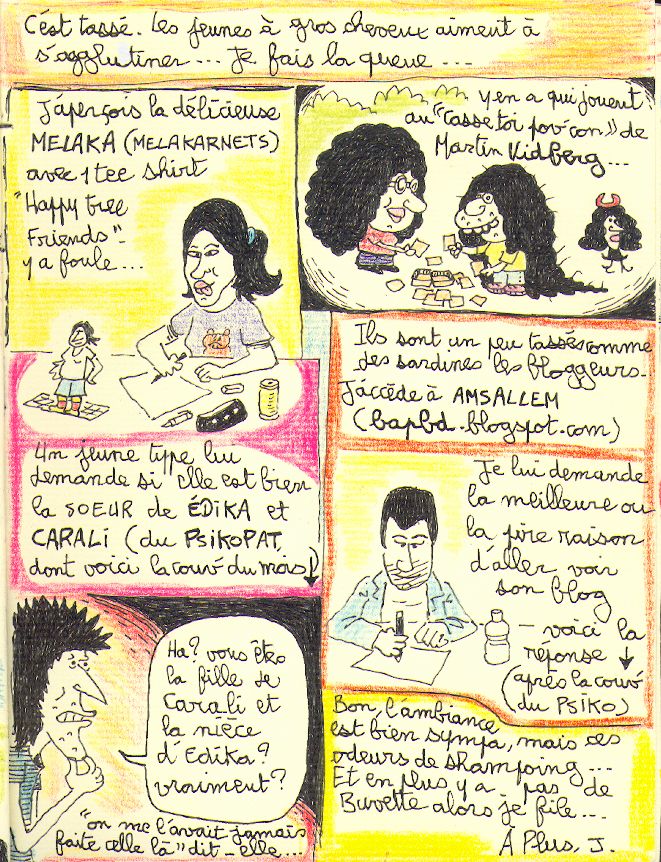 C'est tassé. Les jeunes à gros cheveux aiment à
s'agglutiner... Je fais la queue...
J'aperçois la délicieuse
MELAKA (MELAKARNETS)
avec 1 tee shirt
"Happy tree
Friends"-
y a foule...
y en a qui jouent
au "Casse toi pov'con" de
Martin Vidberg...
Ils sont un peu tassés comme
des sardines les bloggeurs-
J'accède à AMSALLEM
(bapbd.blogspot.com)
Un jeune type lui
demande si elle est bien
la SOEUR de ÉDIKA et
CARALI (du PSIKOPAT,
dont voici la couv du mois) ↓
Je lui demande
la meilleure ou
la pire raison
d'aller voir
son blog
- voici la
réponse ↓
(après la couv
du PSIKO)
Ha? vous êtes
la fille de
Carali et
la nièce
d'Edika?
vraiment?
"on me l'avait jamais
faite celle là" dit-elle...
Bon, l'ambiance
est bien sympa, mais ces
odeurs de shampoing...
Et en plus y a pas de
Buvette alors je file...
A Plus, J.